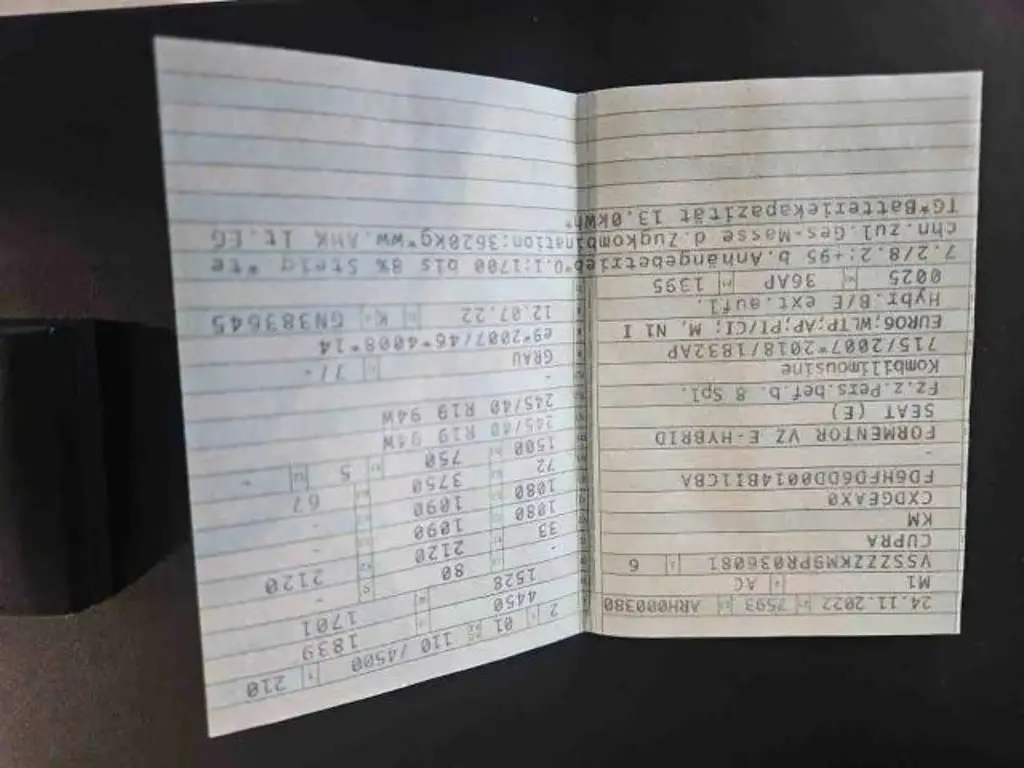 24.11.2022 7593 ARH000380
M1 AC
VSSZZZKM9PR036081 6
CUPRA
KM
CXDGEAX0
FD6HFD6DD0014BI1CBA
FORMENTOR VZ E-HYBRID
SEAT (E)
Fz.z.Pers.bef.b. 8 Spl.
Kombilimousine
715/2007*2018/1832AP
EURO6;WLTP;AP;PI/CI; M, N1 I
Hybr.B/E ext.aufl.
0025 36AP 1395
2 01 110 /4500 210
4450 1839
1528 1701
80 -
33 2120 2120
1080 1090 -
1080 1090 -
72 3750 67
1500 750 5 -
245/40 R19 94W
245/40 R19 94W
-
GRAU 7/-
e9*2007/46*4008*14
12.07.22 K GN383645
7.2/8.2:+95 b.Anhängebetrieb*O.1:1700 bis 8% Steig*te
chn.zul.Ges-Masse d.Zugkombination:3620kg*ww.AHK lt.EG
TG*Batteriekapazität 13,0kWh*